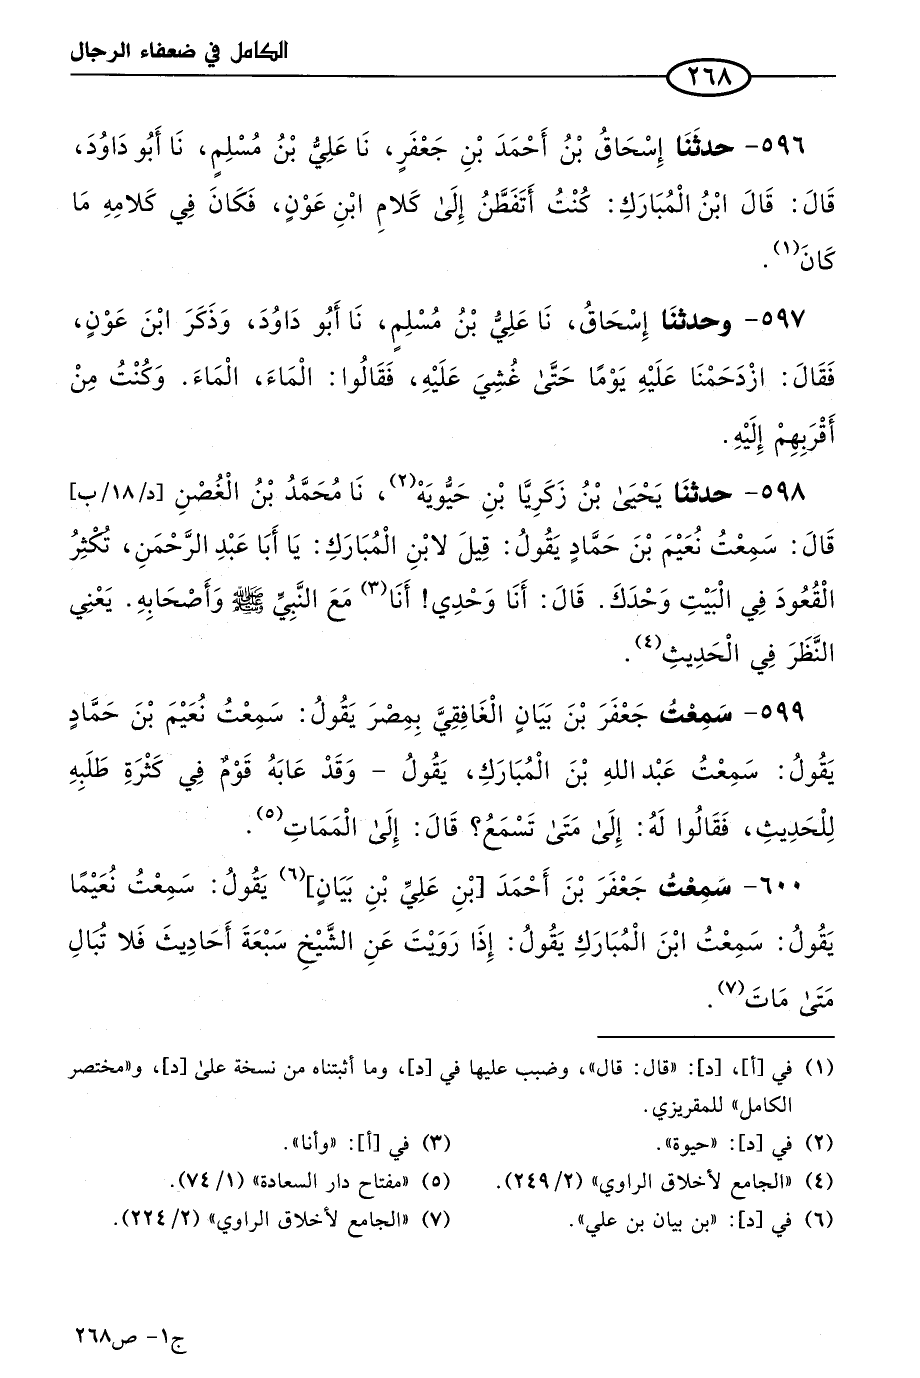 الكامل في ضعفاء الرجال
٢٦٨
٥٩٦- حدثنَا إِسْحَاقُ بْنُ أَحْمَدَ بْنِ جَعْفَرٍ، نَا عَلِيُّ بْنُ مُسْلِمٍ، نَا أَبُو دَاوُدَ،
قَالَ: قَالَ ابْنُ الْمُبَارَكِ: كُنْتُ أَتَفَطَّنُ إِلَىٰ كَلامِ ابْنِ عَوْنٍ، فَكَانَ فِي كَلامِهِ مَا
كَانَ(١).
٥٩٧- وحدثنَا إِسْحَاقُ، نَا عَلِيُّ بْنُ مُسْلِمٍ، نَا أَبُو دَاوُدَ، وَذَكَرَ ابْنَ عَوْنٍ،
فَقَالَ: ازْدَحَمْنَا عَلَيْهِ يَوْمًا حَتَّىٰ غُشِيَ عَلَيْهِ، فَقَالُوا: الْمَاءَ، الْمَاءَ. وَكُنْتُ مِنْ
أَقْرَبِهِمْ إِلَيْهِ.
٥٩٨- حدثنَا يَحْيَىٰ بْنُ زَكَرِيَّا بْنِ حَيُّويَهْ(٢)، نَا مُحَمَّدُ بْنُ الْغُصْنِ [د/١٨/ب]
قَالَ: سَمِعْتُ نُعَيْمَ بْنَ حَمَّادٍ يَقُولُ: قِيلَ لابْنِ الْمُبَارَكِ: يَا أَبَا عَبْدِ الرَّحْمَنِ، تُكْثِرُ
الْقُعُودَ فِي الْبَيْتِ وَحْدَكَ. قَالَ: أَنَا وَحْدِي! أَنَا(٣) مَعَ النَّبِيِّ ﷺ وَأَصْحَابِهِ. يَعْنِي
النَّظَرَ فِي الْحَدِيثِ(٤).
٥٩٩- سَمِعْتُ جَعْفَرَ بْنَ بَيَانٍ الْغَافِقِيَّ بِمِصْرَ يَقُولُ: سَمِعْتُ نُعَيْمَ بْنَ حَمَّادٍ
يَقُولُ: سَمِعْتُ عَبْدَ اللهِ بْنَ الْمُبَارَكِ، يَقُولُ - وَقَدْ عَابَهُ قَوْمٌ فِي كَثْرَةِ طَلَبِهِ
لِلْحَدِيثِ، فَقَالُوا لَهُ: إِلَىٰ مَتَىٰ تَسْمَعُ؟ قَالَ: إِلَىٰ الْمَمَاتِ(٥).
٦٠٠- سَمِعْتُ جَعْفَرَ بْنَ أَحْمَدَ [بْنِ عَلِيِّ بْنِ بَيَانٍ](٦) يَقُولُ: سَمِعْتُ نُعَيْمًا
يَقُولُ: سَمِعْتُ ابْنَ الْمُبَارَكِ يَقُولُ: إِذَا رَوَيْتَ عَنِ الشَّيْخِ سَبْعَةَ أَحَادِيثَ فَلا تُبَالِ
مَتَىٰ مَاتَ(٧).
(١) في [أ]، [د]: «قال: قال»، وضبب عليها في [د]، وما أثبتناه من نسخة علىٰ [د]، و«مختصر
الكامل» للمقريزي.
(٢) في [د]: «حيوة». (٣) في [أ]: «وأنا».
(٤) «الجامع لأخلاق الراوي» (٢/ ٢٤٩). (٥) «مفتاح دار السعادة» (١/ ٧٤).
(٦) في [د]: «بن بيان بن علي». (٧) «الجامع لأخلاق الراوي» (٢/ ٢٢٤).
ج١- ص٢٦٨